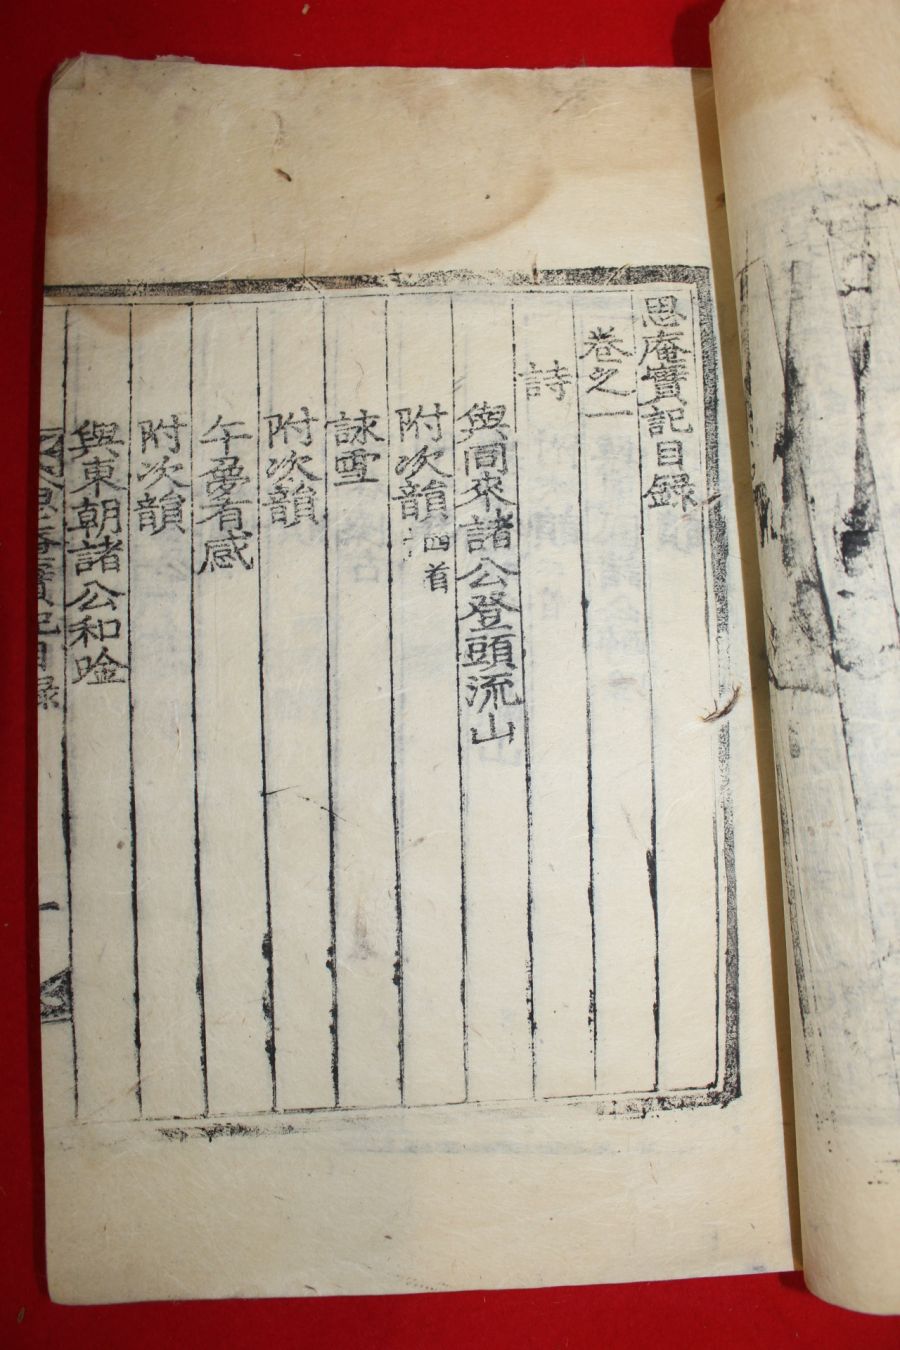 思庵實記目録
卷之一
詩
與同來諸公登頭流山
附次韻四首
詠雪
附次韻
午夢有感
附次韻
與東朝諸公和唫
思庵實記目録
一